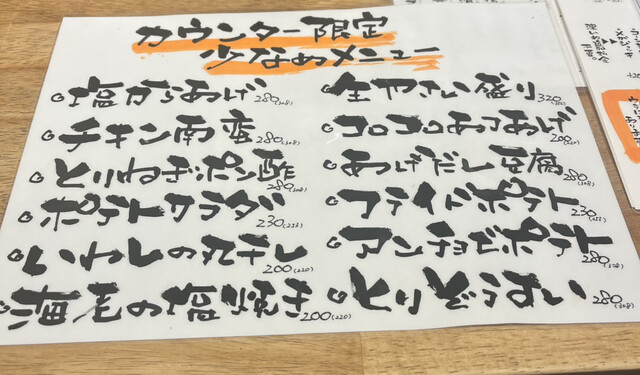 カウンター限定
少なめメニュー
塩からあげ 280(308)
チキン南蛮 280(308)
とりねぎポン酢 280(308)
ポテトサラダ 230(253)
いわしの丸干し 200(220)
海老の塩焼き 200(220)
生やさい盛り 320
コロコロあつあげ 200
あげだし豆腐 280(308)
フライドポテト 230(253)
アンチョビポテト 280(308)
とりぞうすい 280(308)